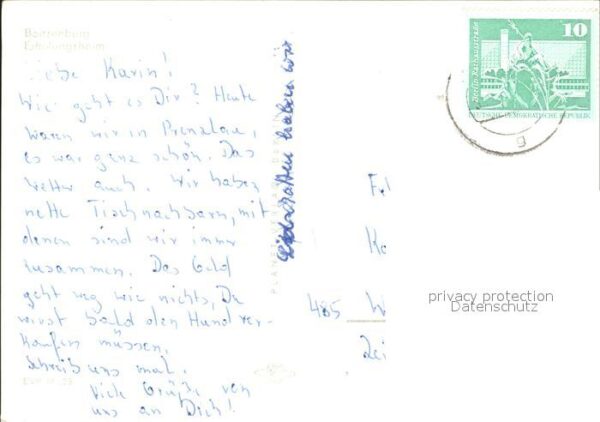 Boitzenburg
Erholungsheim
Liebe Karin!
Wie geht es Dir? Heute
waren wir in Prenzlau,
es war ganz schön. Das
Wetter auch. Wir haben
nette Tischnachbarn, mit
denen sind wir immer
zusammen. Das Geld
geht weg wie nichts, Du
wirst bald den Hund ver-
kaufen müssen.
Schreib uns mal.
Viele Grüße von
uns an Dich!
haben wir
485 W
10
Berlin, Rathausstraße
DEUTSCHE DEMOKRATISCHE REPUBLIK
g
privacy protection
Datenschutz